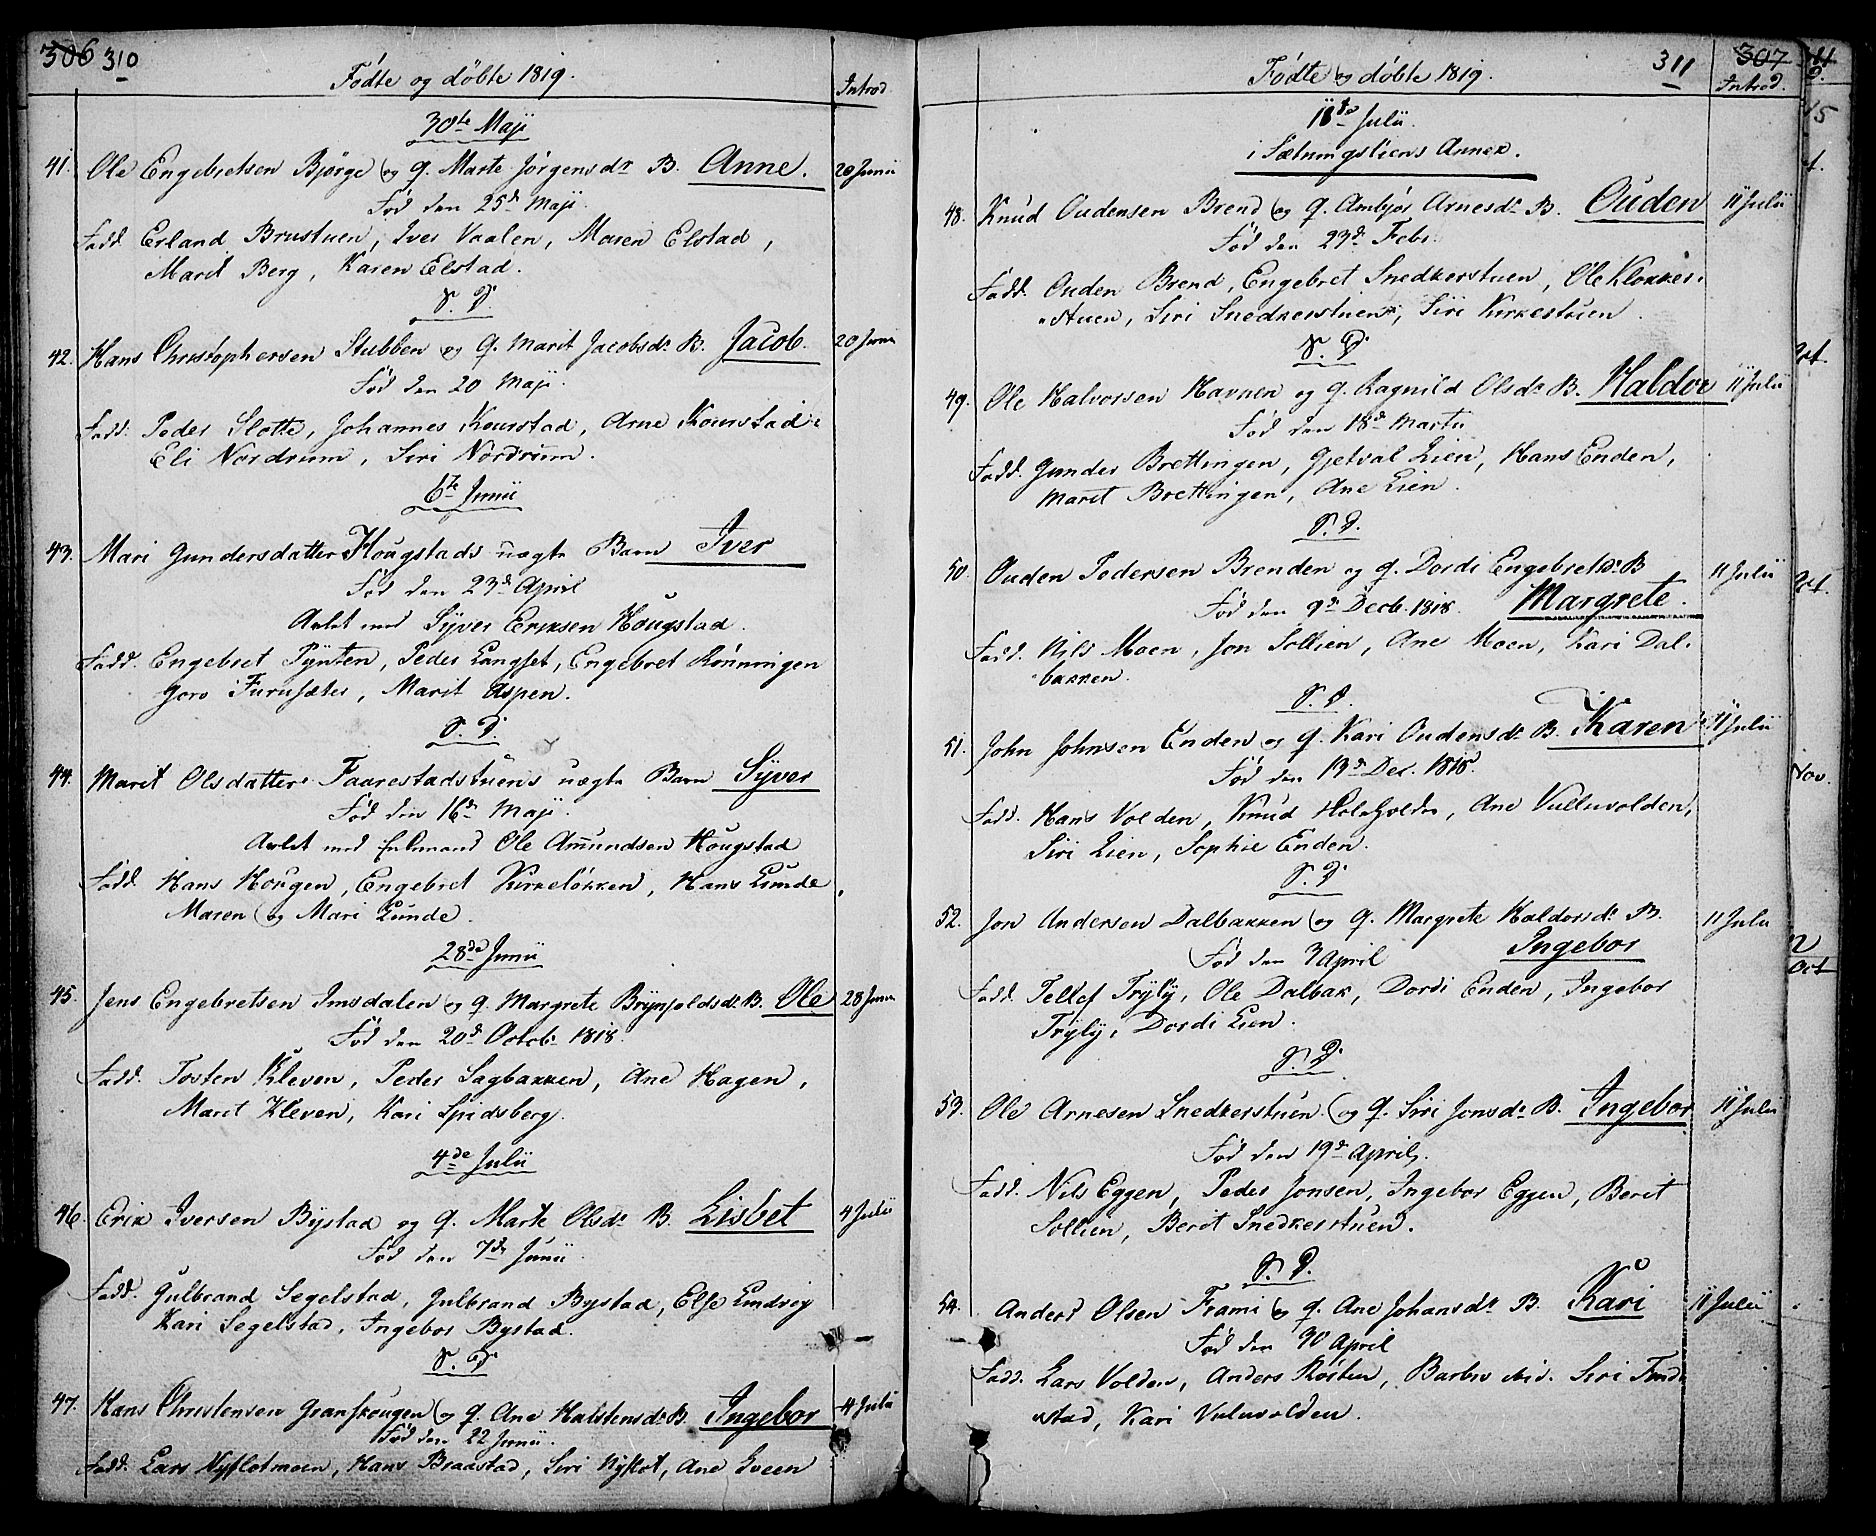 306 310
Fødte og døbte 1819.
Introd
30te Maji
41. Ole Engebretsen Bjørge og q. Marte Jørgensdr B. Anne. 20 Junii
Fød den 25de Maji.
Fadd. Erland Brustuen, Iver Vaalen, Maren Elstad,
Marit Berg, Karen Elstad.
S. D.
42. Hans Christophersen Stubben og q. Marit Jacobsdr B. Jacob. 20 Junii
Fød den 20 Maji.
Fadd. Peder Slotte, Johannes Kourstad, Arne Kourstad
Eli Nordrum, Siri Nordrum.
6te Junii
43. Mari Gundersdatter Hougstads uægte Barn Iver
Fød den 23de April
Avlet med Syver Eriksen Hougstad.
Fadd. Engebret Pynten, Peder Langset, Engebret Rønningen
Goro Furusæter, Marit Aspen.
S. D.
44. Marit Olsdatter Faarestadstuens uægte Barn Syver
Fød den 16de Maji.
Avlet med Enkemand Ole Amundsen Hougstad
Fadd. Hans Hougen, Engebret Kirkeløkken, Hans Lunde,
Maren og Mari Lunde.
28de Junii
45. Jens Engebretsen Imsdalen og q. Margrete Brynjoldsdr B. Ole 28 Junii
Fød den 20de Octobr 1818.
Fadd. Tosten Kleven, Peder Sagbakken, Ane Hagen,
Marit Kleven, Kari Spidsberg.
4de Julii
46. Erik Iversen Bystad og q. Marte Olsdr B. Lisbet 4 Julii
Fød den 7de Junii
Fadd. Gulbrand Segelstad, Gulbrand Bystad, Else Lindvig
Kari Segelstad, Ingebor Bystad.
S. D.
47. Hans Christensen Granskougen og q. Ane Halstensdr B. Ingebor 4 Julii
Fød den 22 Junii.
Fadd. Lars Nyflotmoen, Hans Braastad, Siri Nyflot, Ane Sveen
Fødte og døbte 1819. 311
307
Introd.
11te Julii.
i Sætningsliens Annex.
48. Knud Oudensen Brend og q. Ambjør Arnesdr B. Ouden 11 Julii
Fød den 23de Febr.
Fadd. Ouden Brend, Engebret Snedkerstuen, Ole Klokker-
stuen, Siri Snedkerstuen, Siri Kirkestuen.
S. D.
49. Ole Halvorsen Havnen og q. Ragnild Olsdr B. Haldor 11 Julii
Fød den 18de Martii
Fadd. Gunder Brettingen, Gjetval Lien, Hans Enden,
Marit Brettingen, Ane Lien.
S. D.
50. Ouden Pedersen Brenden og q. Dordi Engebretsdr B 11 Julii
Fød den 9de Decb. 1818. Margrete.
Fadd. Nils Moen, Jon Sollien, Ane Moen, Kari Dal-
bakken.
S. D.
51. John Johnsen Enden og q. Kari Oudensdr B. Karen 11 Julii
Fød den 13de Dec. 1818.
Fadd. Hans Volden, Knud, Ane Vuluvolden,
Siri Lien, Sophie Enden.
S. D.
52. Jon Andersen Dalbakken og q. Margrete Haldorsdr B. 11 Julii
Fød den 3 April Ingebor
Fadd. Tellef Tryly, Ole Dalbak, Dordi Enden, Ingebor
Tryly, Dordi Lien.
S. D.
53. Ole Arnesen Snedkerstuen og q. Siri Jonsdr B. Ingebor 11 Julii
Fød den 19de April.
Fadd. Nils Eggen, Peder Jonsen, Ingebor Eggen, Berit
Sollien, Berit Snedkerstuen.
S. D.
54. Anders Olsen Frami og q. Ane Johansdr B. Kari 11 Julii
Fød den 30 April
Fadd. Lars Volden, Anders Røsten, Barbro ibid. Siri
stad, Kari Vuluvolden.
Nov.
Oct